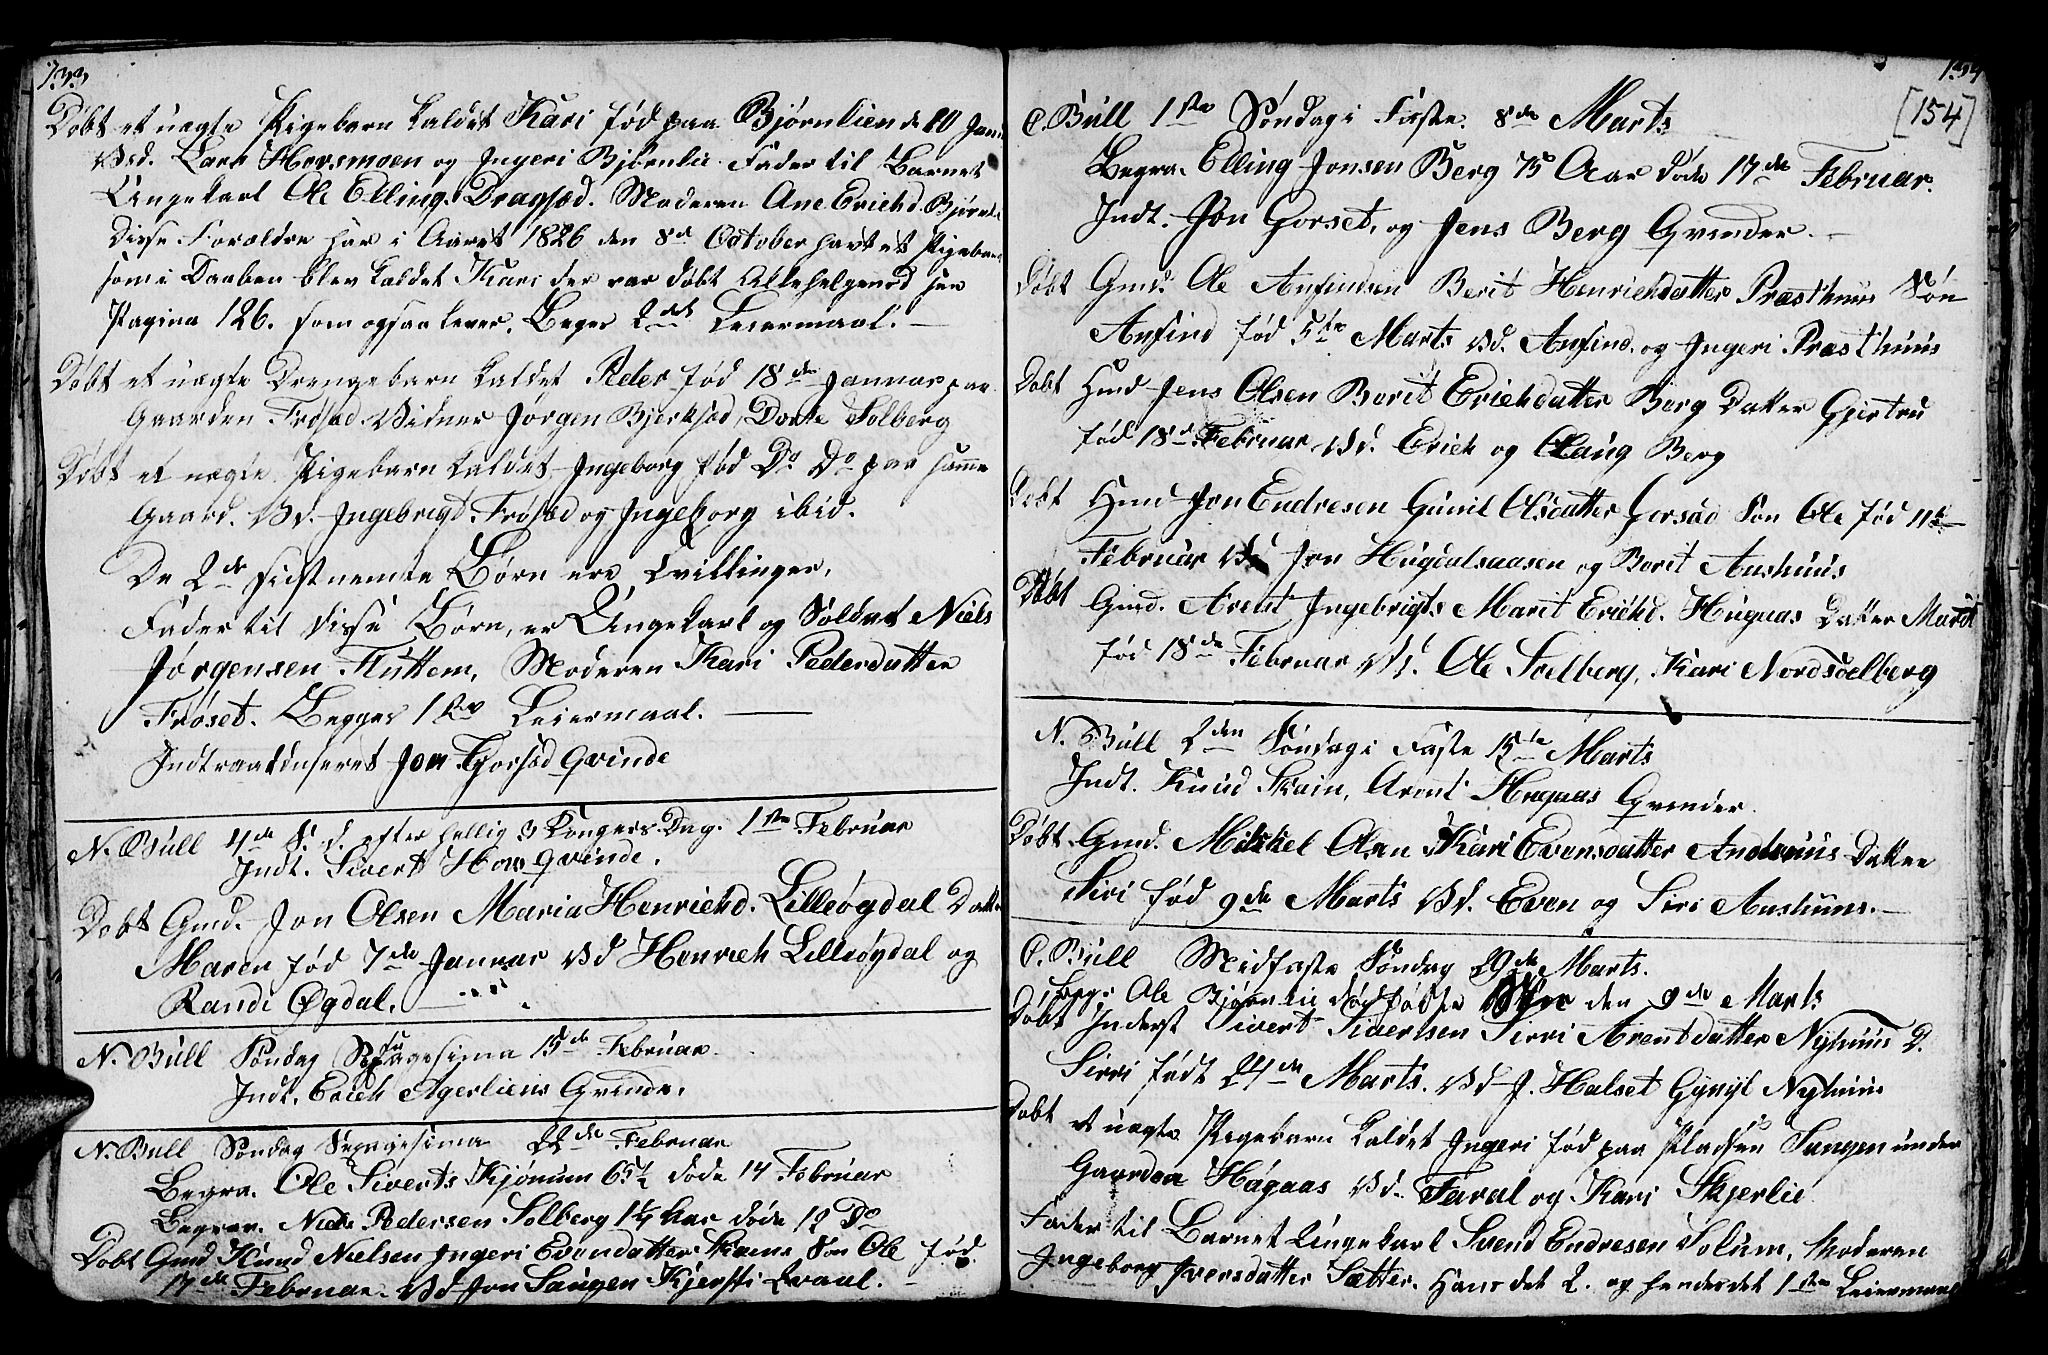 Døbt et uægte Pigebarn kaldet Kari fød paa Bjørnlien d 20 Janu
Vsd. Lars Horsmoen og Ingeri Bjørnlie. Fader til Barnet
Ungekarl Ole Elling. Dragsød. Moderen Ane Erichd. Bjørnli
Disse Forældre har i Aaret 1826 den 8de October havt et Pigebarn
som i Daaben blev kaldet Kari der var døbt Allehelgensd see
Pagina 126. som ogsaa lever. Begges 2det Leiermaal.
Døbt et uægte Drengebarn kaldet Peder fød 18de Januar paa
Gaarden Frøsød. Vidner Jørgen Bjerksød, Dorte Solberg
Døbt et uægte Pigebarn kaldet Ingeborg fød Do Do paa samme
Gaard. Vd. Ingebrigt Frøsød og Ingeborg ibid.
De 2de sidst nemte Børn ere Tvillinger.
Fader til disse Børn, er Ungekarl og Soldat Niels
Jørgensen Fluttem, Moderen Kari Pedersdatter
Frøset. Begges 1ste Leiermaal.
Indtroduseret Jon Gorsød Qvinde
N. Bull 4de S. d. efter hellig 3 Kongers Dag. 1ste Februar
Indt. Sivert How Qvinde.
Døbt Gmd. Jon Olsen Maria Henrichd. Lilleøgdal Datter
Maren fød 7de Januar Vd Henrich Lilleøgdal og
Randi Øgdal.
N. Bull Søndag 15de Februar
Indt. Erich Agerliens Qvinde.
N. Bull Søndag 22de Februar
Begra. Ole Siverts Kjønum 65½ døde 14 Februar
Begrav. Niels Pedersen Solberg 1¼ Aar døde 12 Do
Døbt Gmd Knud Nielsen Ingeri Evensdatter Skaine Søn Ole fød
17de Februar. Vd Jon Saugen Kjersti Evaul.
[154]
O. Bull 1ste Søndag i Faste. 8de Marts
Begra. Elling Jonsen Berg 75 Aar døde 17de Februar.
Indt. Jon Gorset, og Jens Berg Qvinder.
Døbt Gmd. Ole Anfindsen Berit Henrichdatter Præsthuus Søn
Anfind fød 5te Marts Vd. Anfind. og Ingeri Præsthuus
Døbt Hmd Jens Olsen Berit Erichdatter Berg Datter Gjertru
fød 18de Februar Vd. Erich og Olaug Berg
Døbt Hmd Jon Endresen Gunil Olsdatter Gorsød Søn Ole fød 11te
Februar Vd Jon Hugdalsaasen og Berit Aushuus
Døbt Gmd. Arent Ingebrigts Marit Erichd. Hugaas Datter Marit
fød 18de Februar Vd. Ole Soelberg, Kari Nordsoelberg
N. Bull 2den Søndag i Faste 15de Marts
Indt. Knud Skain, Arent Hugaas Qvinder.
Døbt Gmd. Mikkel Olsen Kari Evensdatter Aushuus Datter
Siri fød 9de Marts Vd. Even og Siri Aushuus.
O. Bull Midfaste Søndag 29de Marts.
Begr. Ole Bjørnlie den 9de Marts
Døbt Inderst Sivert Sivertsen Sirri Arentdatter Nyhuus D.
Sirri født 24de Marts. Vd J. Halset Nyhuus
Døbt et uægte Pigebarn kaldet Ingeri fød paa Pladsen Saugen under
Gaarden Høgaas Vd. Farral og Kari Skjerlie
Fader til Barnet Ungekarl Svend Endresen Solum, Moderen
Ingeborg Iversdatter Sætter. Hans det 2. og hendes det 1ste Leiermaal